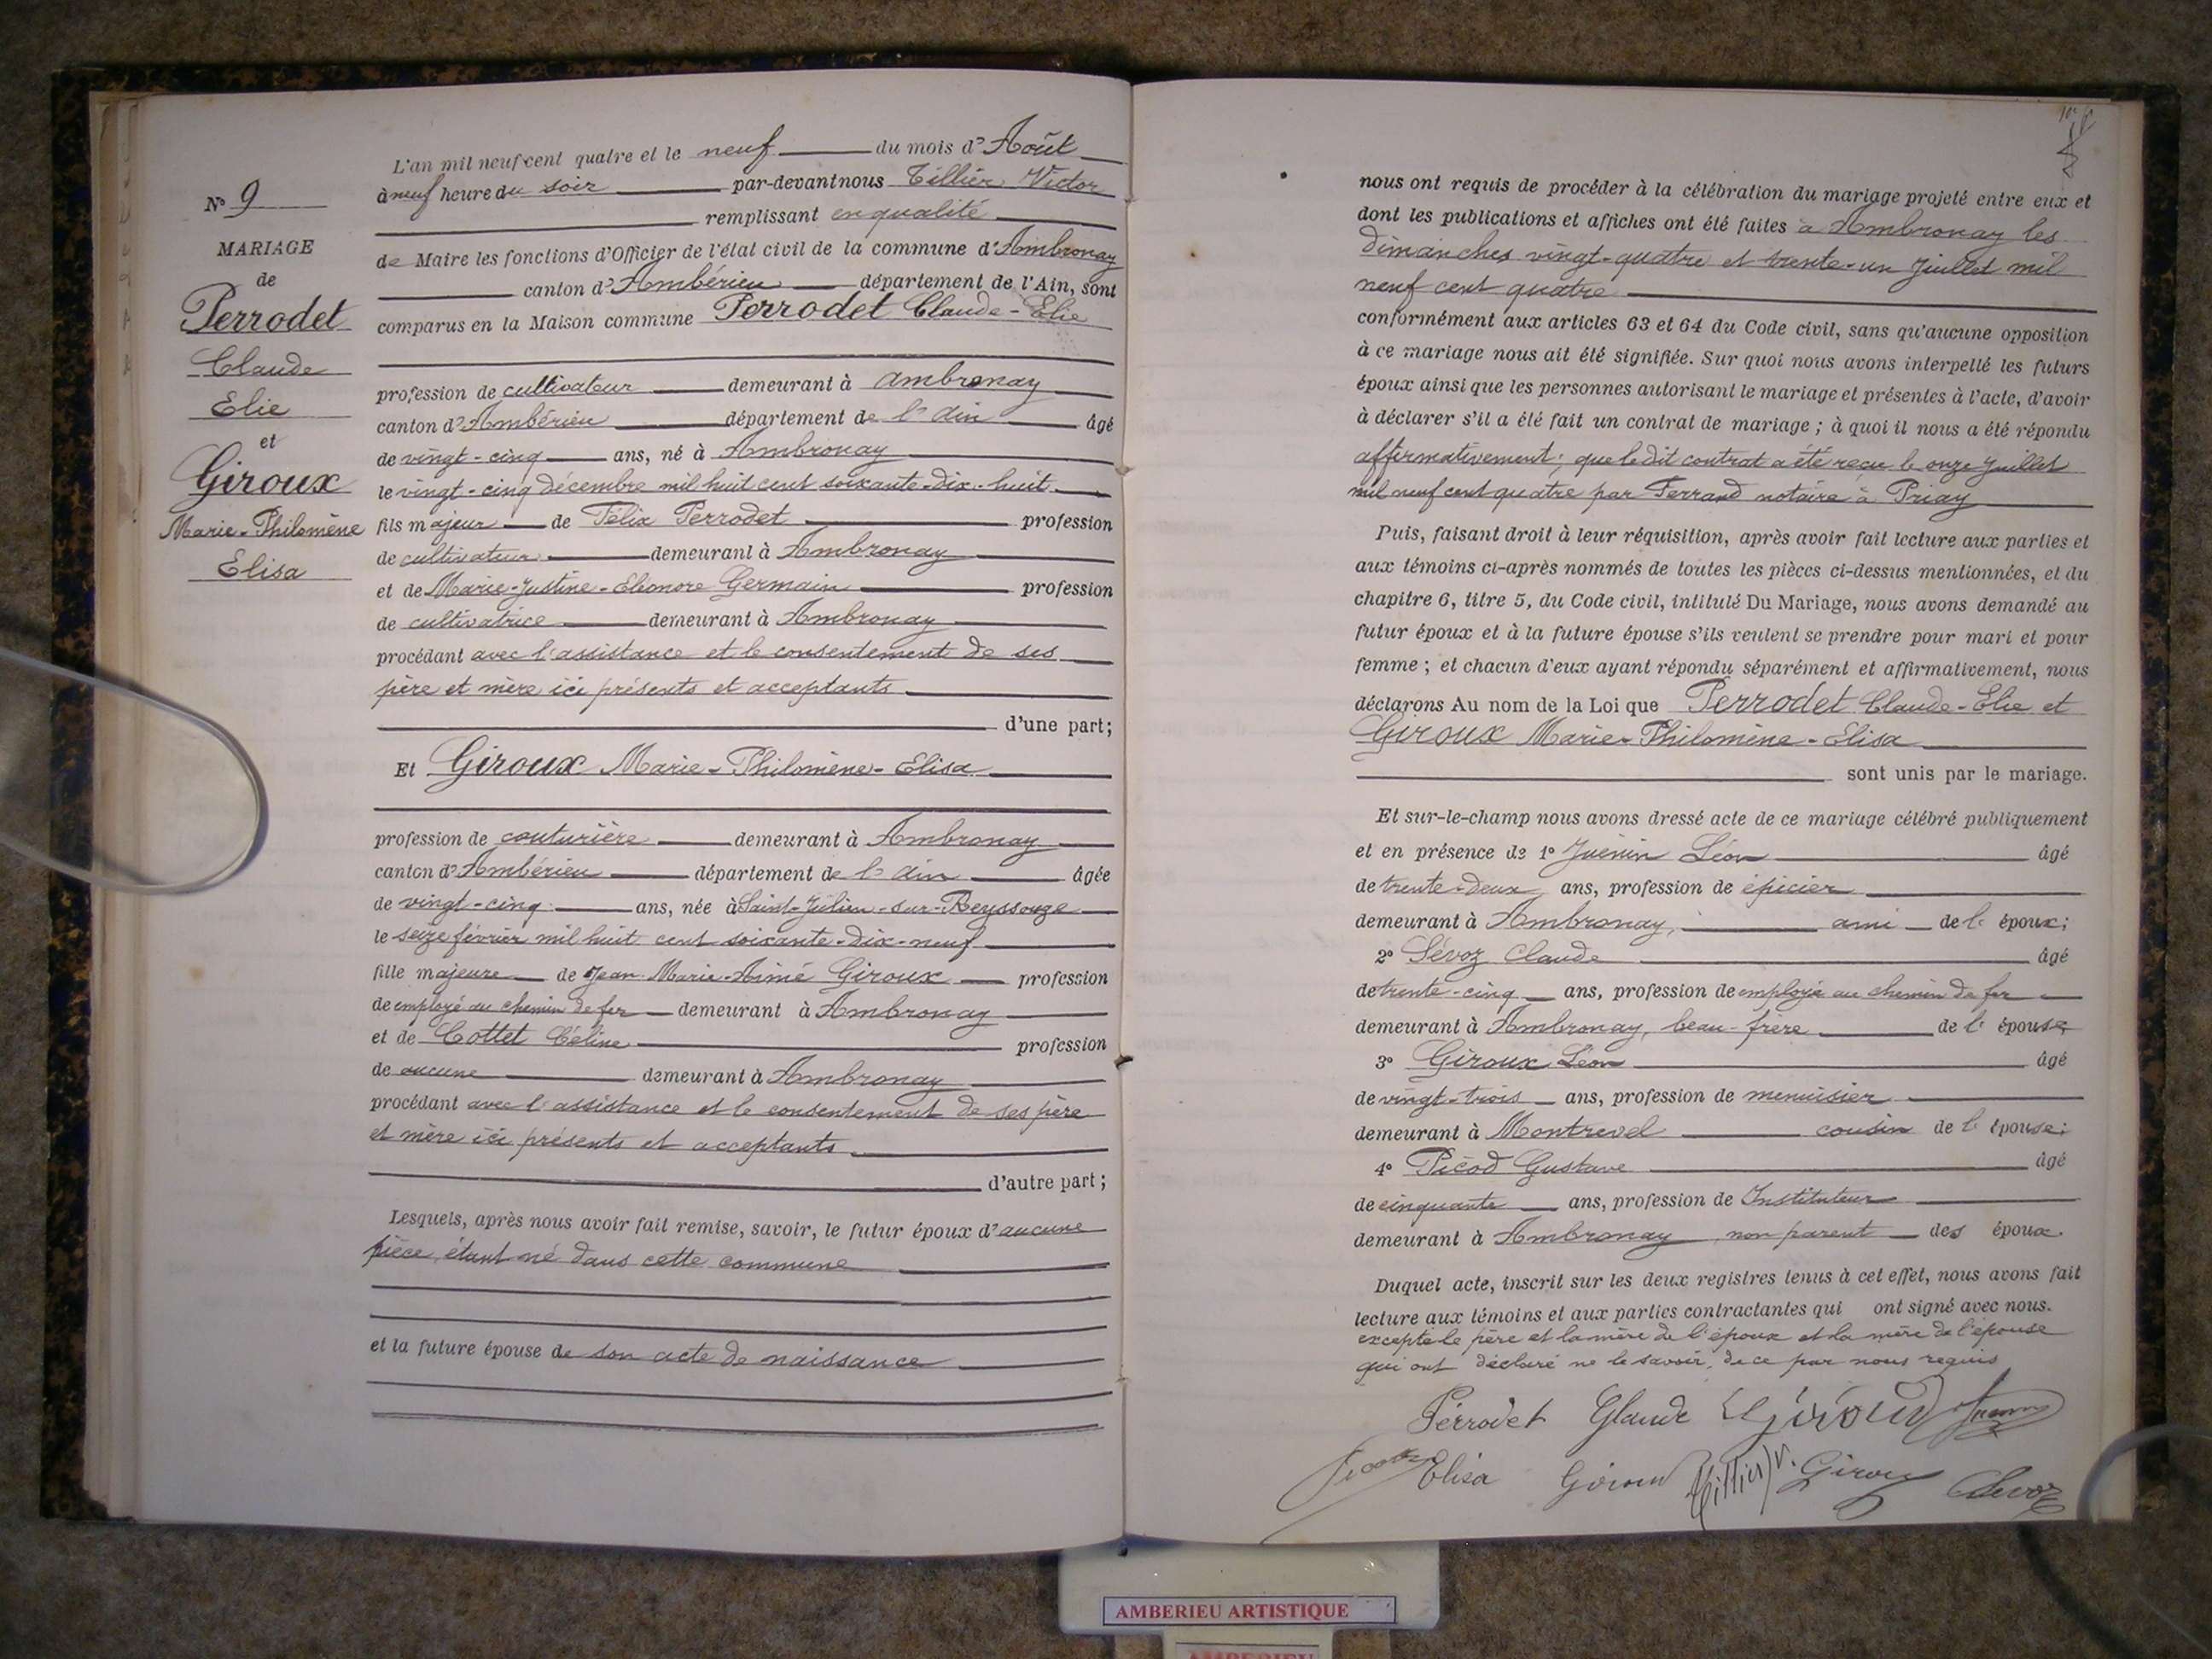 N° 9
MARIAGE
de
Perrodet
Claude
Elie
et
Giroux
Marie-Philomène
Elisa
L'an mil neuf cent quatre et le neuf du mois d'Août
à neuf heure du soir par-devant nous Tillier Victor
remplissant en qualité
de Maire les fonctions d'Officier de l'état civil de la commune d'Ambronay
canton d'Ambérieu département de l'Ain, sont
comparus en la Maison commune Perrodet Claude-Elie
profession de cultivateur demeurant à ambronay
canton d'Ambérieu département de l'ain âgé
de vingt-cinq ans, né à Ambronay
le vingt-cinq décembre mil huit cent soixante-dix-huit
fils majeur de Félix Perrodet profession
de cultivateur demeurant à Ambronay
et de Marie-Justine-Eléonore Germain profession
de cultivatrice demeurant à Ambronay
procédant avec l'assistance et le consentement de ses
père et mère ici présents et acceptants
d'une part;
Et Giroux Marie-Philomène-Elisa
profession de couturière demeurant à Ambronay
canton d'Ambérieu département de l'ain âgée
de vingt-cinq ans, née à Saint-Julien-sur-Reyssouze
le seize février mil huit cent soixante-dix-neuf
fille majeure de Jean-Marie-Aimé Giroux profession
de employé au chemin de fer demeurant à Ambronay
et de Cottet Céline profession
de aucune demeurant à Ambronay
procédant avec l'assistance et le consentement de ses père
et mère ici présents et acceptants
d'autre part;
Lesquels, après nous avoir fait remise, savoir, le futur époux d'aucune
pièce, étant né dans cette commune
et la future épouse de son acte de naissance
nous ont requis de procéder à la célébration du mariage projeté entre eux et
dont les publications et affiches ont été faites à Ambronay les
dimanches vingt-quatre et trente-un Juillet mil
neuf cent quatre
conformément aux articles 63 et 64 du Code civil, sans qu'aucune opposition
à ce mariage nous ait été signifiée. Sur quoi nous avons interpellé les futurs
époux ainsi que les personnes autorisant le mariage et présentes à l'acte, d'avoir
à déclarer s'il a été fait un contrat de mariage; à quoi il nous a été répondu
affirmativement; que le dit contrat a été reçu le onze Juillet
mil neuf cent quatre par Ferrand notaire à Priay
Puis, faisant droit à leur réquisition, après avoir fait lecture aux parties et
aux témoins ci-après nommés de toutes les pièces ci-dessus mentionnées, et du
chapitre 6, titre 5, du Code civil, intitulé Du Mariage, nous avons demandé au
futur époux et à la future épouse s'ils veulent se prendre pour mari et pour
femme; et chacun d'eux ayant répondu séparément et affirmativement, nous
déclarons Au nom de la Loi que Perrodet Claude-Elie et
Giroux Marie-Philomène-Elisa
sont unis par le mariage.
Et sur-le-champ nous avons dressé acte de ce mariage célébré publiquement
et en présence de 1° Juénin Léon âgé
de trente-deux ans, profession de épicier
demeurant à Ambronay, ami de l' époux;
2° Sévoz Claude âgé
de trente-cinq ans, profession de employé au chemin de fer
demeurant à Ambronay, beau-frère de l' épouse
3° Giroux Léon âgé
de vingt-trois ans, profession de menuisier
demeurant à Montrevel cousin de l' épouse;
4° Picod Gustave âgé
de cinquante ans, profession de Instituteur
demeurant à Ambronay non parent des époux.
Duquel acte, inscrit sur les deux registres tenus à cet effet, nous avons fait
lecture aux témoins et aux parties contractantes qui ont signé avec nous.
excepté le père et la mère de l'époux et la mère de l'épouse
qui ont déclaré ne le savoir, de ce par nous requis
Perrodet Glaude
Elisa Giroux Tillier V. Giroux Sevoz
AMBERIEU ARTISTIQUE
AMBERIEU